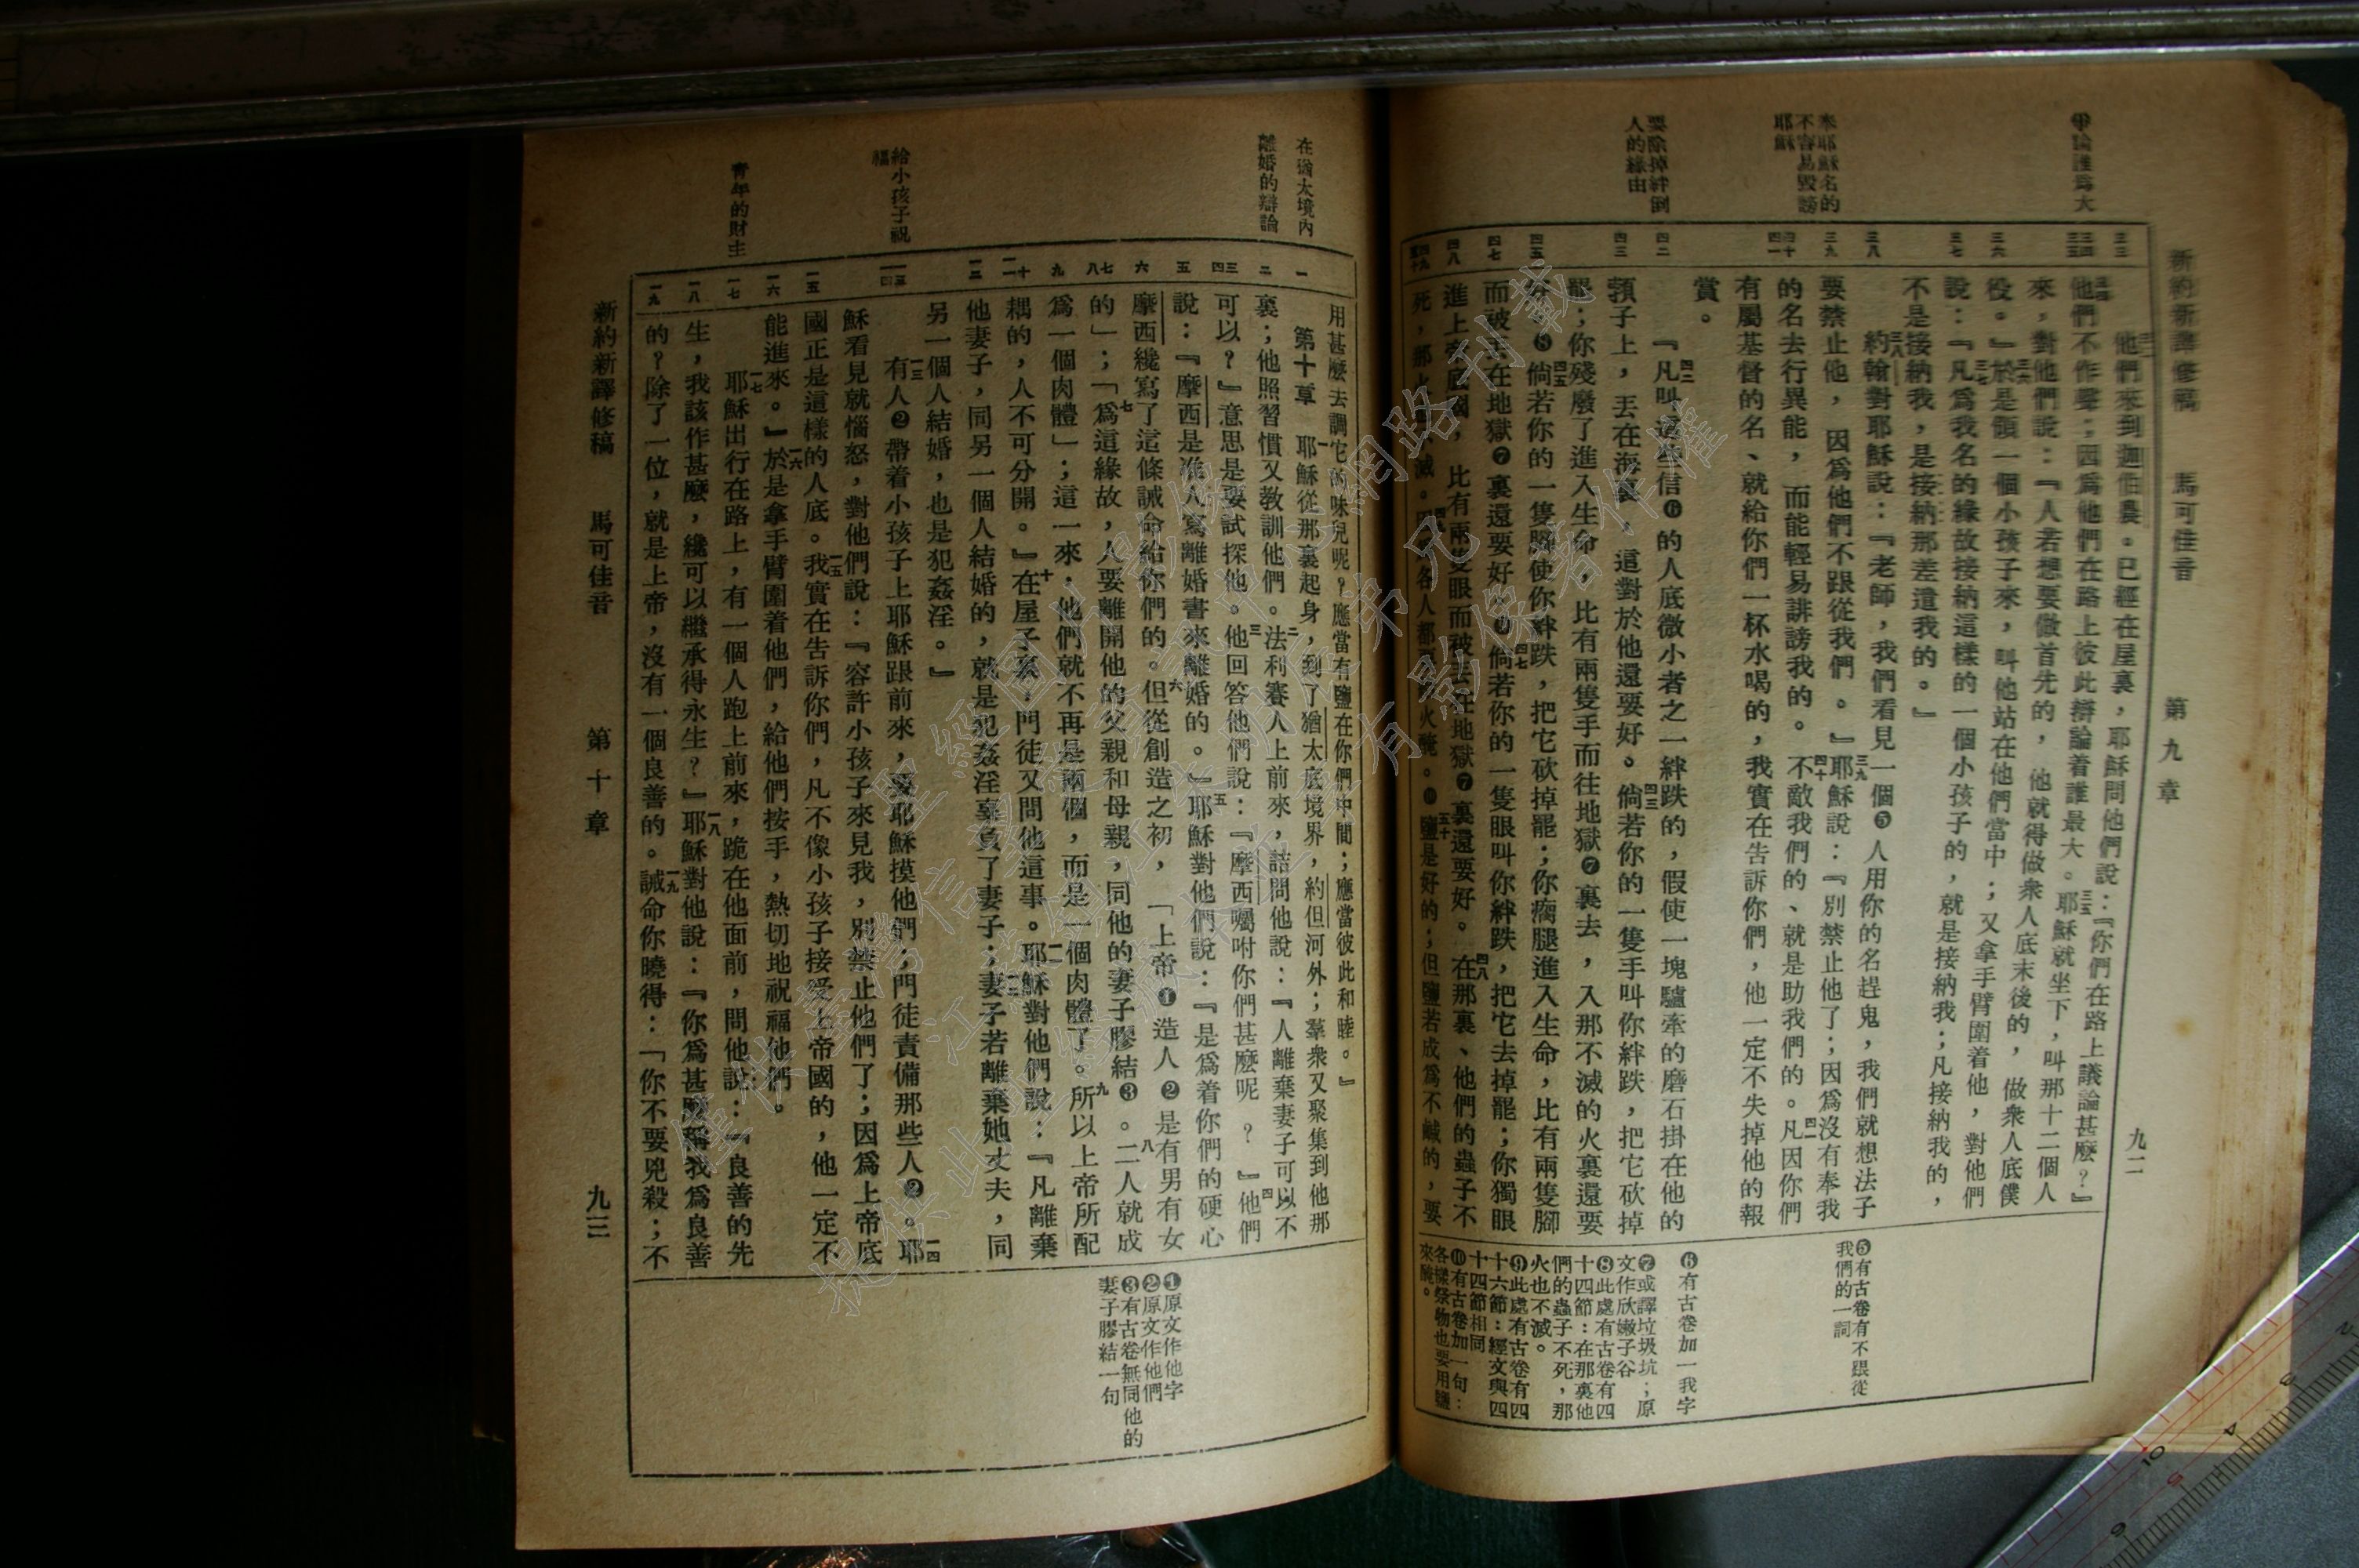 新約新譯修稿　馬可佳音　第九章　九二
爭論誰爲大
奉耶穌名的
不容易毀謗
耶穌
要除掉絆倒
人的緣由
三三
三四
三五
三六
三七
三八
三九
四十
四一
四二
四三
四五
四七
四八
四九
五十
三三他們來到迦伯農。已經在屋裏，耶穌問他們說：『你們在路上議論甚麼？』
三四他們不作聲；因爲他們在路上彼此辯論着誰最大。三五耶穌就坐下，叫那十二個人
來，對他們說：『人若想要做首先的，他就得做衆人底末後的，做衆人底僕
役。』三六於是領一個小孩子來，叫他站在他們當中；又拿手臂圍着他，對他們
說：三七『凡爲我名的緣故接納這樣的一個小孩子的，就是接納我；凡接納我的，
不是接納我，是接納那差遣我的。』
三八約翰對耶穌說：『老師，我們看見一個❺人用你的名趕鬼，我們就想法子
要禁止他，因爲他們不跟從我們。』三九耶穌說：『別禁止他了；因爲沒有奉我
的名去行異能，而能輕易誹謗我的。四十不敵我們的、就是助我們的。四一凡因你們
有屬基督的名、就給你們一杯水喝的，我實在告訴你們，他一定不失掉他的報
賞。
四二『凡叫這些信❻的人底微小者之一絆跌的，假使一塊驢牽的磨石掛在他的
頸子上，丟在海裏，這對於他還要好。四三倘若你的一隻手叫你絆跌，把它砍掉
罷；你殘廢了進入生命，比有兩隻手而往地獄❼裏去，入那不滅的火裏還要
❽四五倘若你的一隻腳使你絆跌，把它砍掉罷；你瘸腿進入生命，比有兩隻腳
而被丟在地獄❼裏還要好。❾四七倘若你的一隻眼叫你絆跌，把它去掉罷；你獨眼
進上帝底國，比有兩隻眼而被丟在地獄❼裏還要好。四八在那裏、他們的蟲子不
死，那火不滅。四九因爲各人都要用火醃。❿五十鹽是好的；但鹽若成爲不鹹的，要
❺有古卷有不跟從
我們的一詞
❻有古卷加一我字
❼或譯垃圾坑；原
文作欣嫩子谷
❽此處有古卷有四
十四節：在那裏他
們的蟲子不死，那
火也不滅。
❾此處有古卷有四
十六節：經文與四
十四節相同
❿有古卷加一句：
各樣祭物也要用鹽
來醃。
在猶太境內
離婚的辯論
給小孩子祝
福
青年的財主
一
二
三
四
五
六
七
八
九
十
一一
一二
一三
一四
一五
一六
一七
一八
一九
用甚麼去調它的味兒呢？應當有鹽在你們中間；應當彼此和睦。』
第十章　一耶穌從那裏起身，到了猶太底境界，約但河外；羣衆又聚集到他那
裏；他照習慣又教訓他們。二法利賽人上前來，詰問他說：『人離棄妻子可以不
可以？』意思是要試探他。三他回答他們說：『摩西囑咐你們甚麼呢？』四他們
說：『摩西是准人寫離婚書來離婚的。』五耶穌對他們說：『是爲着你們的硬心
摩西纔寫了這條誡命給你們的。六但從創造之初，「上帝❶造人❷是有男有女
的」；七「爲這緣故，人要離開他的父親和母親，同他的妻子膠結❸。八二人就成
爲一個肉體」；這一來，他們就不再是兩個，而是一個肉體了。九所以上帝所配
耦的，人不可分開。』十在屋子裏，門徒又問他這事。一一耶穌對他們說：『凡離棄
他妻子，同另一個人結婚的，就是犯姦淫辜負了妻子；一二妻子若離棄她丈夫，同
另一個人結婚，也是犯姦淫。』
一三有人❷帶着小孩子上耶穌跟前來，要耶穌摸他們；門徒責備那些人❷。一四耶
穌看見就惱怒，對他們說：『容許小孩子來見我，別禁止他們了；因爲上帝底
國正是這樣的人底。一五我實在告訴你們，凡不像小孩子接受上帝國的，他一定不
能進來。』一六於是拿手臂圍着他們，給他們按手，熱切地祝福他們。
一七耶穌出行在路上，有一個人跑上前來，跪在他面前，問他說：『良善的先
生，我該作甚麼，纔可以繼承得永生？』一八耶穌對他說：『你爲甚麼稱我爲良善
的？除了一位，就是上帝，沒有一個良善的。一九誡命你曉得：「你不要兇殺；不
❶原文作他字
❷原文作他們
❸有古卷無同他的
妻子膠結一句
新約新譯修稿　馬可佳音　第十章　九三